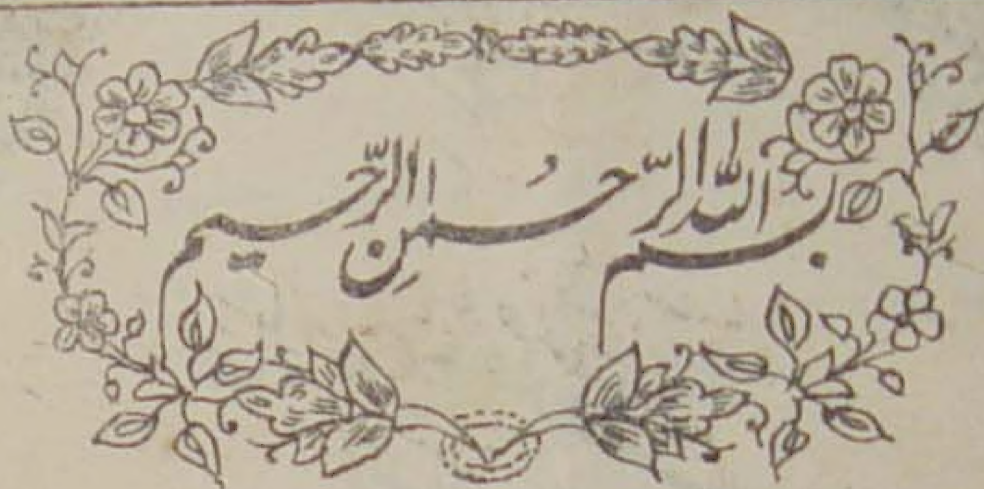 بسم الله الرَّحمٰنِ الرَّحیم